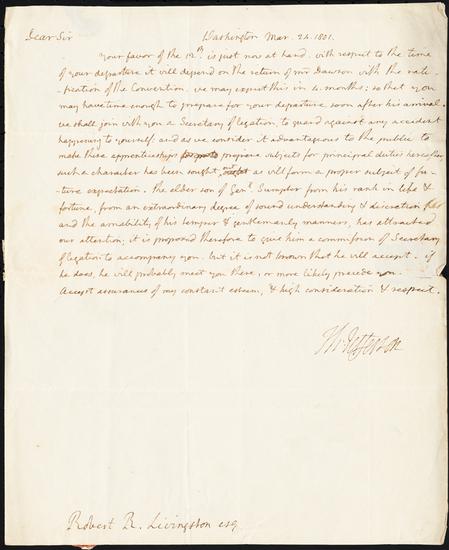 Dear Sir Washington Mar. 24. 1801.
Your favor of the 12th is just now at hand. with respect to the time
of your departure it will depend on the return of mr Dawson with the rati-
fication of the Convention. we may expect this in 4. months; so that you
may have time enough to prepare for your departure soon after his arrival.
we shall join with you a Secretary of legation, to guard against any accident
happening to yourself. and as we consider it advantageous to the public to
make these apprenticeships prepare subjects for principal duties hereafter
such a character has been sought out as will form a proper subject of fu-
ture expectation. the elder son of Genl. Sumpter from his rank in life &
fortune, from an extraordinary degree of sound understanding & discretion
and the amability of his temper & gentlemanly manners, has attracted
our attention; it is proposed therefore to give him a commission of Secretary
of legation to accompany you. but it is not known that he will accept. if
he does, he will probably meet you there, or more likely precede you.
Accept assurances of my constant esteem, & high consideration & respect.
Th: Jefferson
Robert R. Livingston esq.